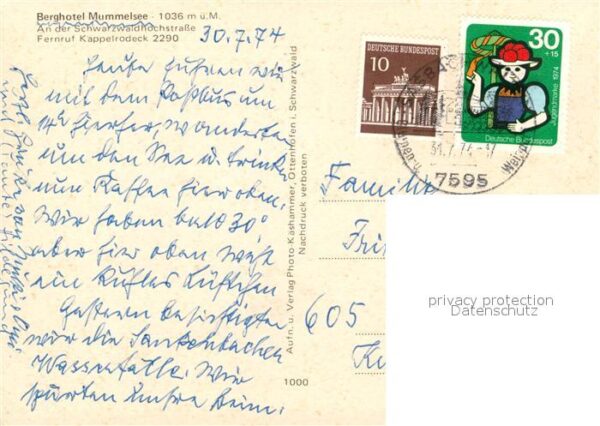 Berghotel Mummelsee - 1036 m ü.M.
An der Schwarzwaldhochstraße
Fernruf Kappelrodeck 2290
30.7.74
Heute fuhren wir
mit dem Postbus um
14h hierher, wanderten
um den See u. trinken
nun Kaffee hier oben.
Wir haben bald 30°
aber hier oben weht
ein kühles Lüftchen
Gestern besichtigten
wir die Sankenbacher
Wasserfälle. Wir
spürten unsre Beine.
Aufn. u. Verlag Photo-Kashammer, Ottenhöfen i. Schwarzwald
Nachdruck verboten
1000
DEUTSCHE BUNDESPOST
10
30
+15
Jugendmarke 1974
Deutsche Bundespost
31.7.74
7595
Familie
605
privacy protection
Datenschutz